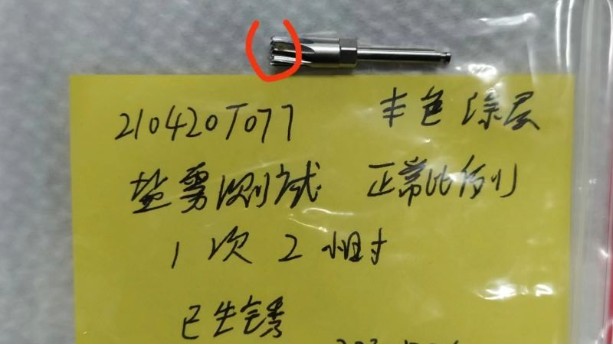 210420T077 本色涂层
盐雾测试 正常比例
1次2小时
已生锈